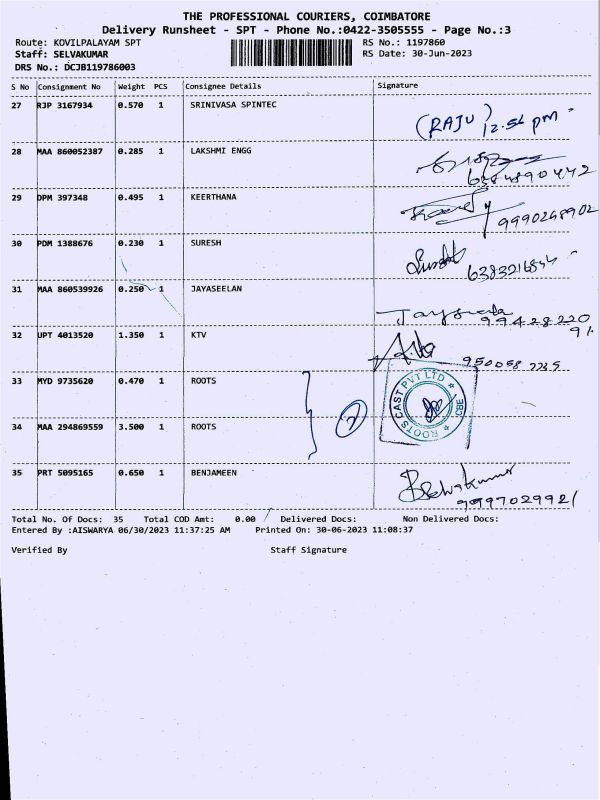 THE PROFESSIONAL COURIERS, COIMBATORE
Delivery Runsheet - SPT - Phone No.:0422-3505555 - Page No.:3
Route: KOVILPALAYAM SPT RS No.: 1197860
Staff: SELVAKUMAR RS Date: 30-Jun-2023
DRS No.: DCJB119786003
S No Consignment No Weight PCS Consignee Details Signature
27 RJP 3167934 0.570 1 SRINIVASA SPINTEC
(RAJU) 12.56 pm
28 MAA 860052387 0.285 1 LAKSHMI ENGG
29 DPM 397348 0.495 1 KEERTHANA
9990268902
30 PDM 1388676 0.230 1 SURESH
31 MAA 860539926 0.250 1 JAYASEELAN
9942822091
32 UPT 4013520 1.350 1 KTV
33 MYD 9735620 0.470 1 ROOTS
ROOTS CAST PVT LTD ★ CBE ★
2
34 MAA 294869559 3.500 1 ROOTS
35 PRT 5095165 0.650 1 BENJAMEEN
9997029921
Total No. Of Docs: 35 Total COD Amt: 0.00 Delivered Docs: Non Delivered Docs:
Entered By :AISWARYA 06/30/2023 11:37:25 AM Printed On: 30-06-2023 11:08:37
Verified By Staff Signature